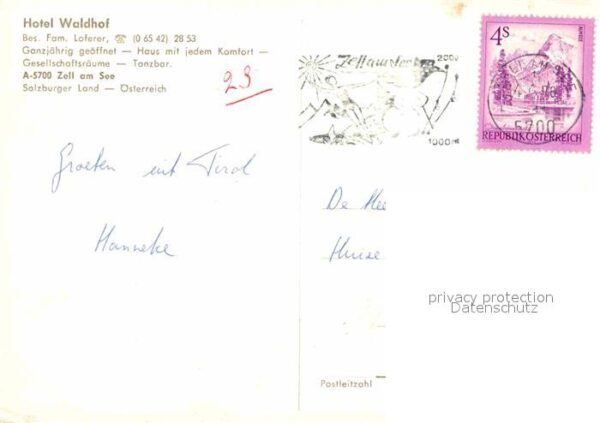 Hotel Waldhof
Bes. Fam. Loferer, ☎ (0 65 42) 28 53
Ganzjährig geöffnet — Haus mit jedem Komfort —
Gesellschaftsräume — Tanzbar.
A-5700 Zell am See
Salzburger Land — Österreich
23
Zell am See
200
1000 m
4S
5700
REPUBLIK ÖSTERREICH
Groeten uit Tirol
Hanneke
De Hee
Huize
privacy protection
Datenschutz
Postleitzahl